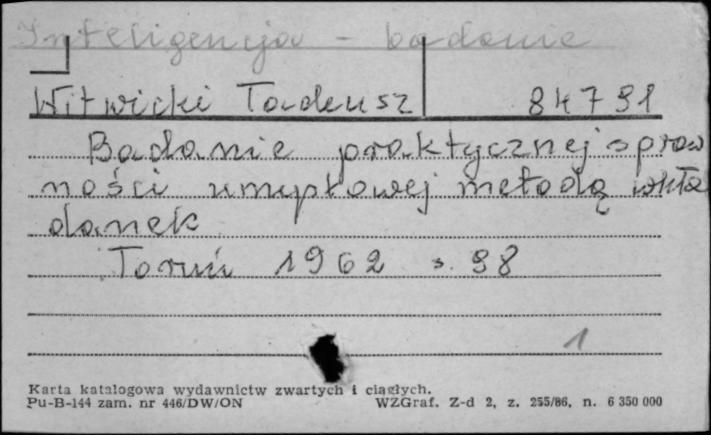 Inteligencja - badanie
Witwicki Tadeusz 84791
Badanie praktycznej spraw
ności umysłowej metodą wkła
danek
Toruń 1962 s. 98
1
Karta katalogowa wydawnictw zwartych i ciągłych.
Pu-B-144 zam. nr 446/DW/ON WZGraf. Z-d 2, z. 255/86, n. 6 350 000